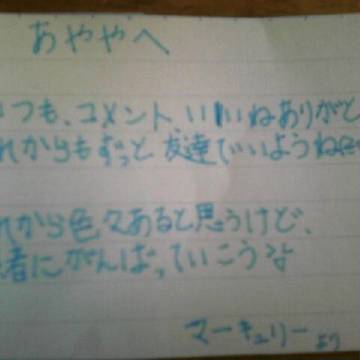 あややへ
つも、コメント、いいねありがと
れからもずっと友達でいようね
れから色々あると思うけど、
緒にがんばっていこうな
マーキュリーより